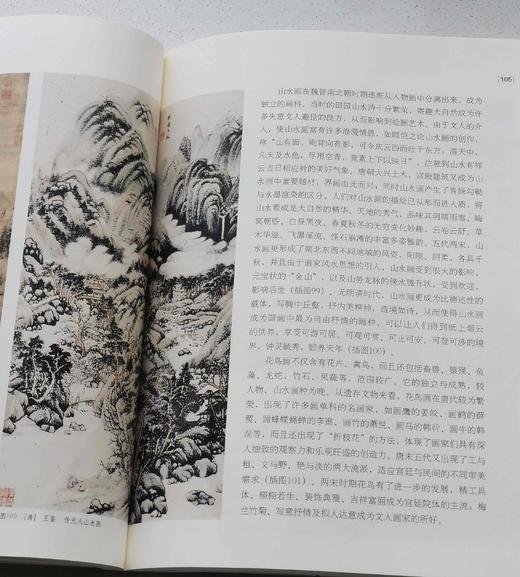 105
山水画在魏晋南北朝时期逐渐从人物画中分离出来，成为
独立的画科。当时的田园山水诗十分繁荣，寄趣大自然成为许
多失意文人遁世的良方，从而影响到绘画艺术。由于文人的介
入，使山水画富有许多浪漫情思，如顾恺之论山水画的创作，
称“山有面，则背向有影，可令庆云西而吐于东方，清天中，
凡天及水色，尽用空青，竟素上下以映日”，注意到山水有祥
云吉日相应衬的美好气象。唐朝大兴土木，宫殿建筑又成为山
水画中重要题材，界画由此而兴，同时山水画产生了青绿勾勒
与水墨渲染的区分，人们对山水画的描绘已从形而进入质，将
山水看成是大自然的精华，天地的秀气，品味其阴晴雨雪、晦
冥朝昏、白昼黑夜、春夏秋冬的无穷变化妙趣，云卷云舒、草
木华滋、飞瀑溪流、怪石崩滩的丰富多姿雅韵。五代两宋，山
水画更形成了南北东西不同地域的风姿，阳刚、阴柔，各具千
秋，并且由于道家风水思想的引入，山水画受到很大的影响，
元宝状的“金山”，以及山势龙脉的傍水锋开状，受到欢迎，
影响后世（插图99）。元明清时代，山水画更成为比德述性的
载体，写胸中丘壑，抒内美精神，造境如诗，从而使得山水画
成为国画中最为自由抒情的画种，可以让人们得到纸上烟云
的供养，享受可游可居、可观可赏、可止可安、可登可涉的境
界，钟灵毓秀，颐养天年（插图100）。
花鸟画不仅含有花卉、禽鸟，而且还包括畜兽、猿猴、鱼
藻、龙蛇、竹石、果蔬等，范围较广。它的独立与成熟，较
人物、山水画种为晚。从遗存文物来看，花鸟画在唐代较为繁
荣，出现了许多画单科的名画家，如画鹰的姜皎，画鹤的薛
稷，画蜂蝶蝇蝉的李逖，画竹的萧悦，画马的韩幹，画牛的韩
滉等，而且还出现了“折枝花”的方法，体现了画家们具有深
入细致的观察力和乐观旺盛的创造力。唐末五代又出现了工与
粗、文与野、艳与淡的两大流派，适应宫廷与民间的不同审美
需求（插图101）。两宋时期花鸟有了进一步的发展，精工具
体、栩栩若生、装饰典雅、吉祥富丽成为宫廷院体的主流；梅
兰竹菊、写意抒情及拟人达意成为文人画家的所好。
图100 ［清］ 王鉴 仿光人山水图